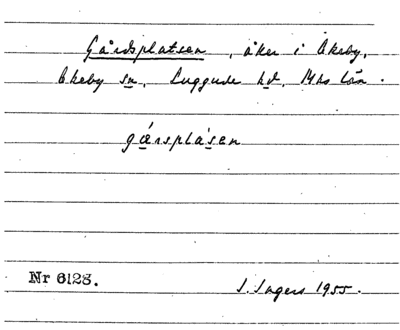 Gårdsplatsen, åker i Ekeby,
Ekeby sn, Luggude hd, Mhs län.
gǽrsplásen
Nr 6128.
J. Ingers 1955.